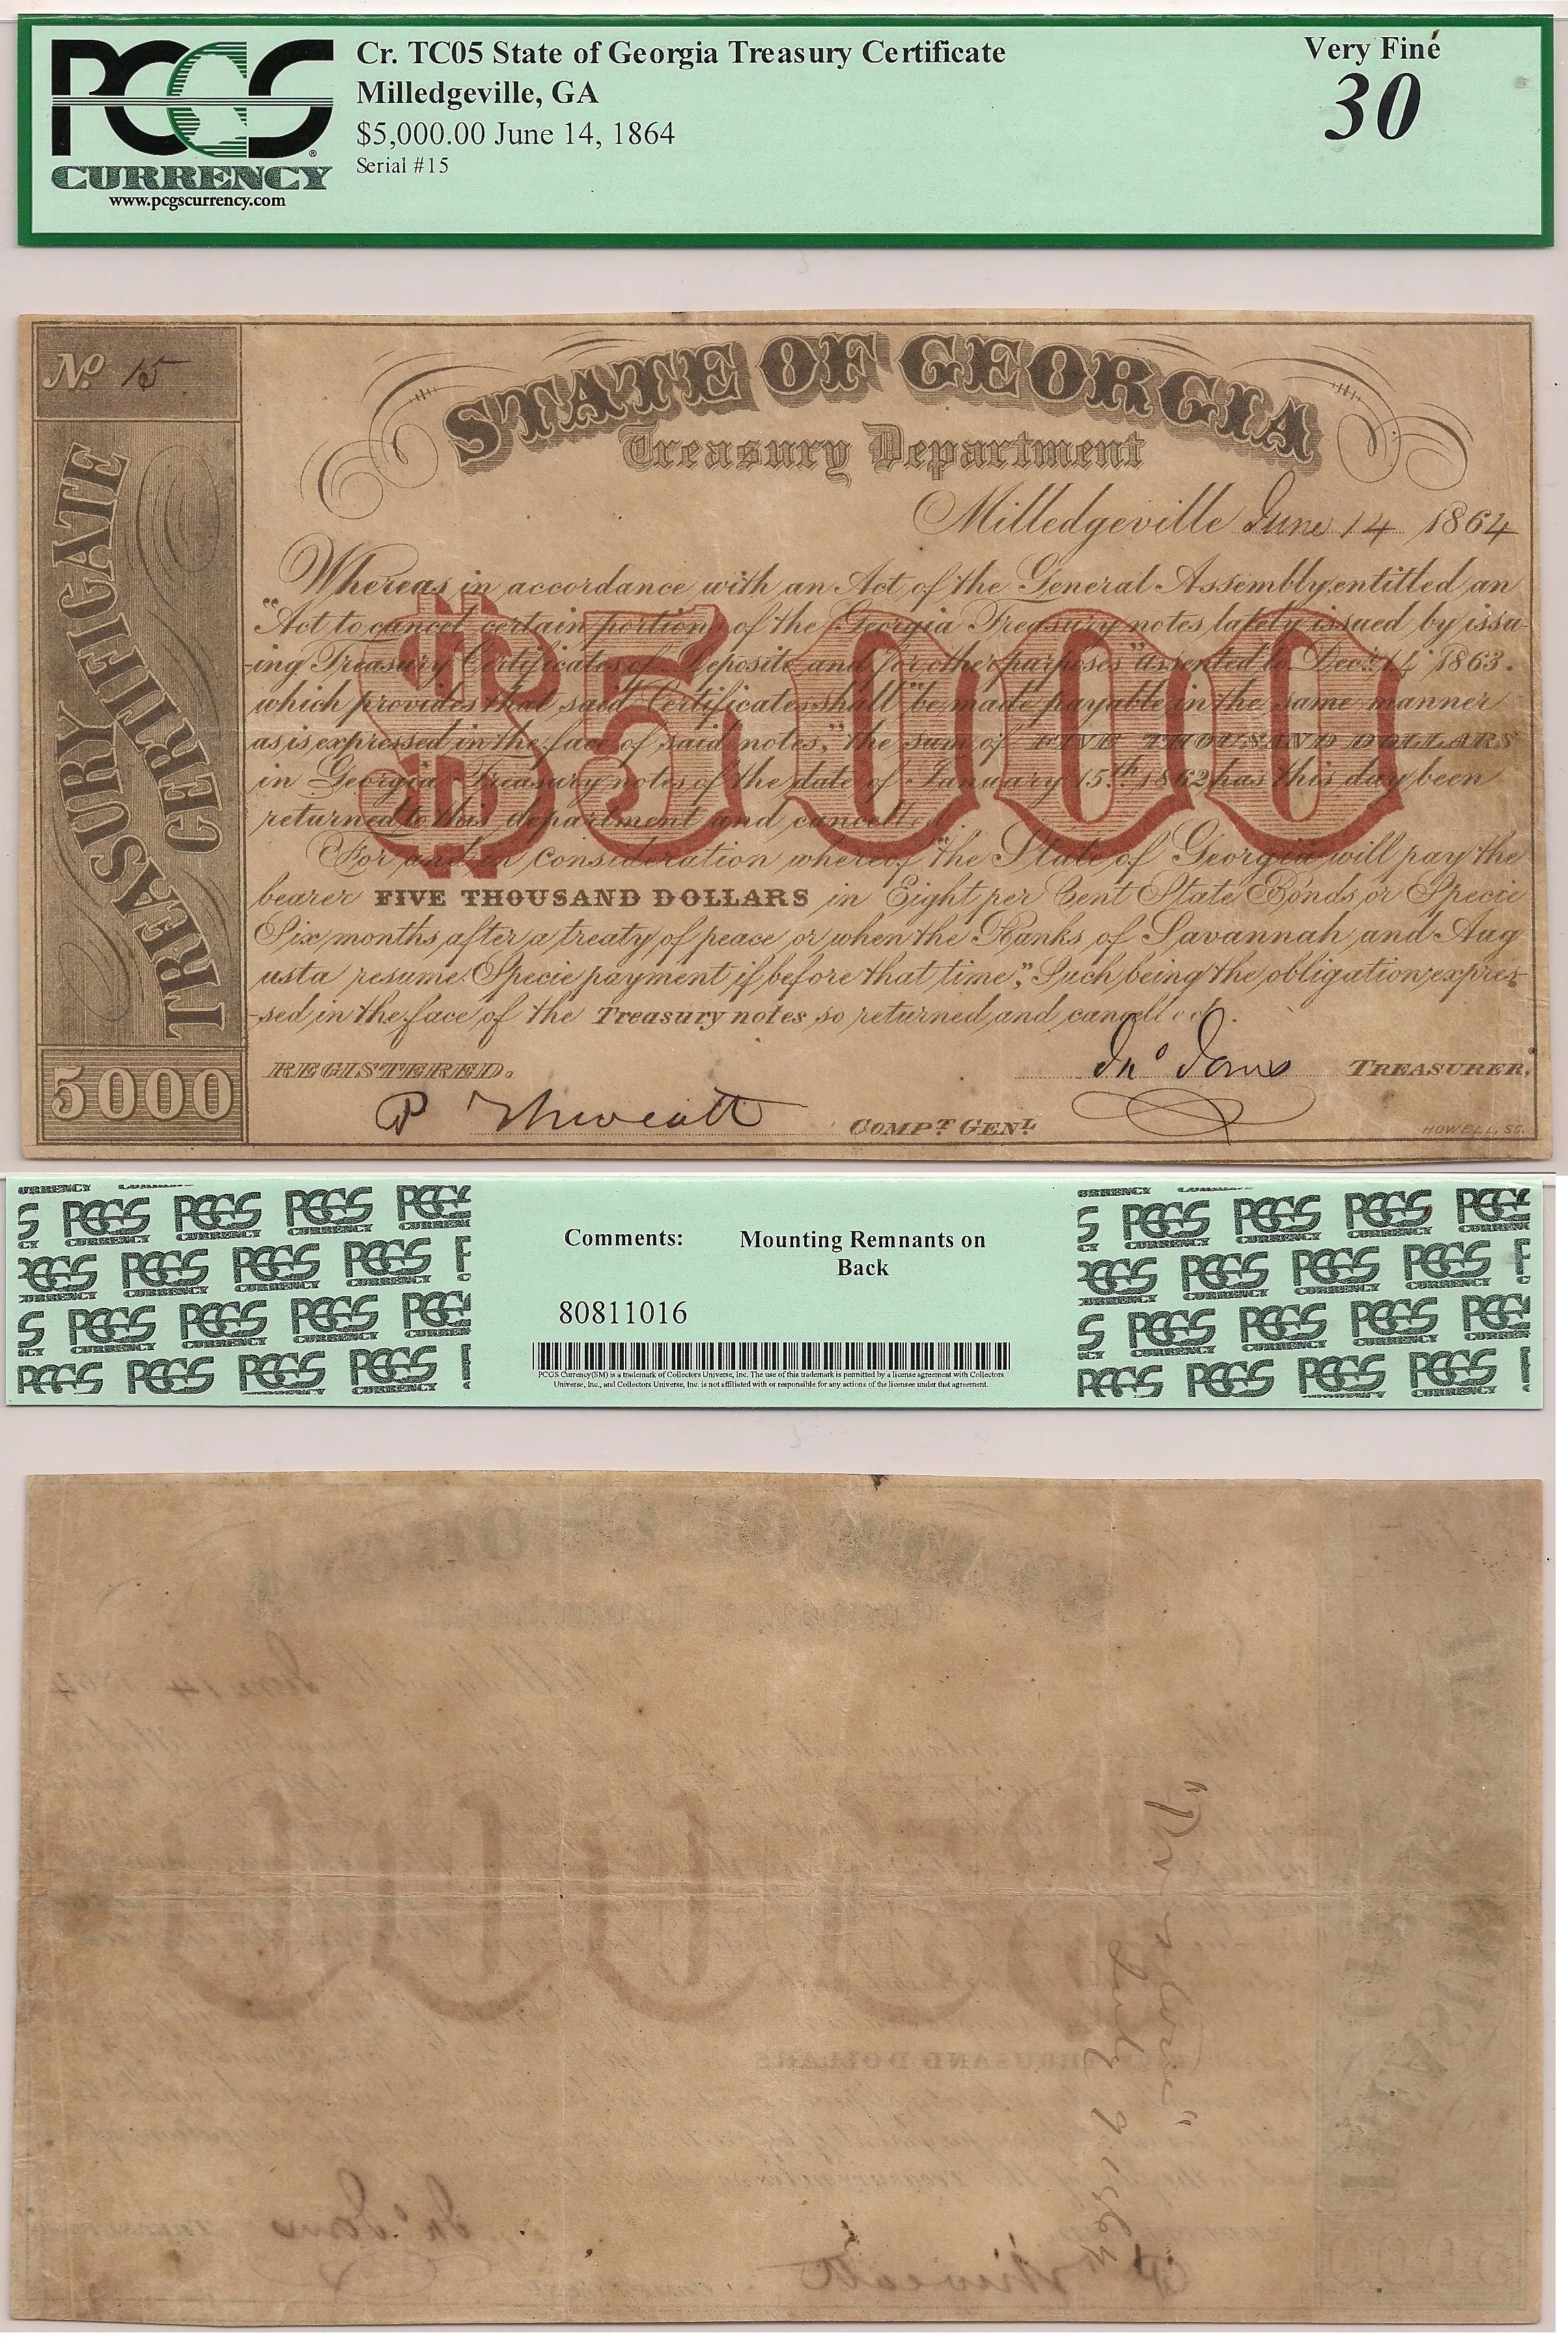 PCGS
CURRENCY
www.pcgscurrency.com
Cr. TC05 State of Georgia Treasury Certificate
Milledgeville, GA
$5,000.00 June 14, 1864
Serial #15
Very Fine
30
No. 15
TREASURY CERTIFICATE
5000
STATE OF GEORGIA
Treasury Department
Milledgeville June 14 1864
Whereas in accordance with an Act of the General Assembly entitled an
"Act to cancel certain portions of the Georgia Treasury notes lately issued by issu-
-ing Treasury Certificates of Deposite and for other purposes" assented to Decr. 14 1863.
which provides that said Certificates shall "be made payable in the same manner
as is expressed in the face of said notes," the sum of FIVE THOUSAND DOLLARS
in Georgia Treasury notes of the date of January 15th 1862 has this day been
returned to this department and cancelled.
For and in consideration whereof "the State of Georgia will pay the
bearer FIVE THOUSAND DOLLARS in Eight per Cent State Bonds or Specie
Six months after a treaty of peace or when the Banks of Savannah and Aug
usta resume Specie payment if before that time," Such being the obligation expres-
-sed in the face of the Treasury notes so returned and cancelled.
$5000
REGISTERED.
Jno Jones TREASURER.
P Thweatt COMPT. GENL.
HOWELL, SC.
Comments: Mounting Remnants on
Back
80811016
PCGS Currency(SM) is a trademark of Collectors Universe, Inc. The use of this trademark is permitted by a license agreement with Collectors
Universe, Inc., and Collectors Universe, Inc. is not affiliated with or responsible for any actions of the licensee under that agreement.
July 9 1864